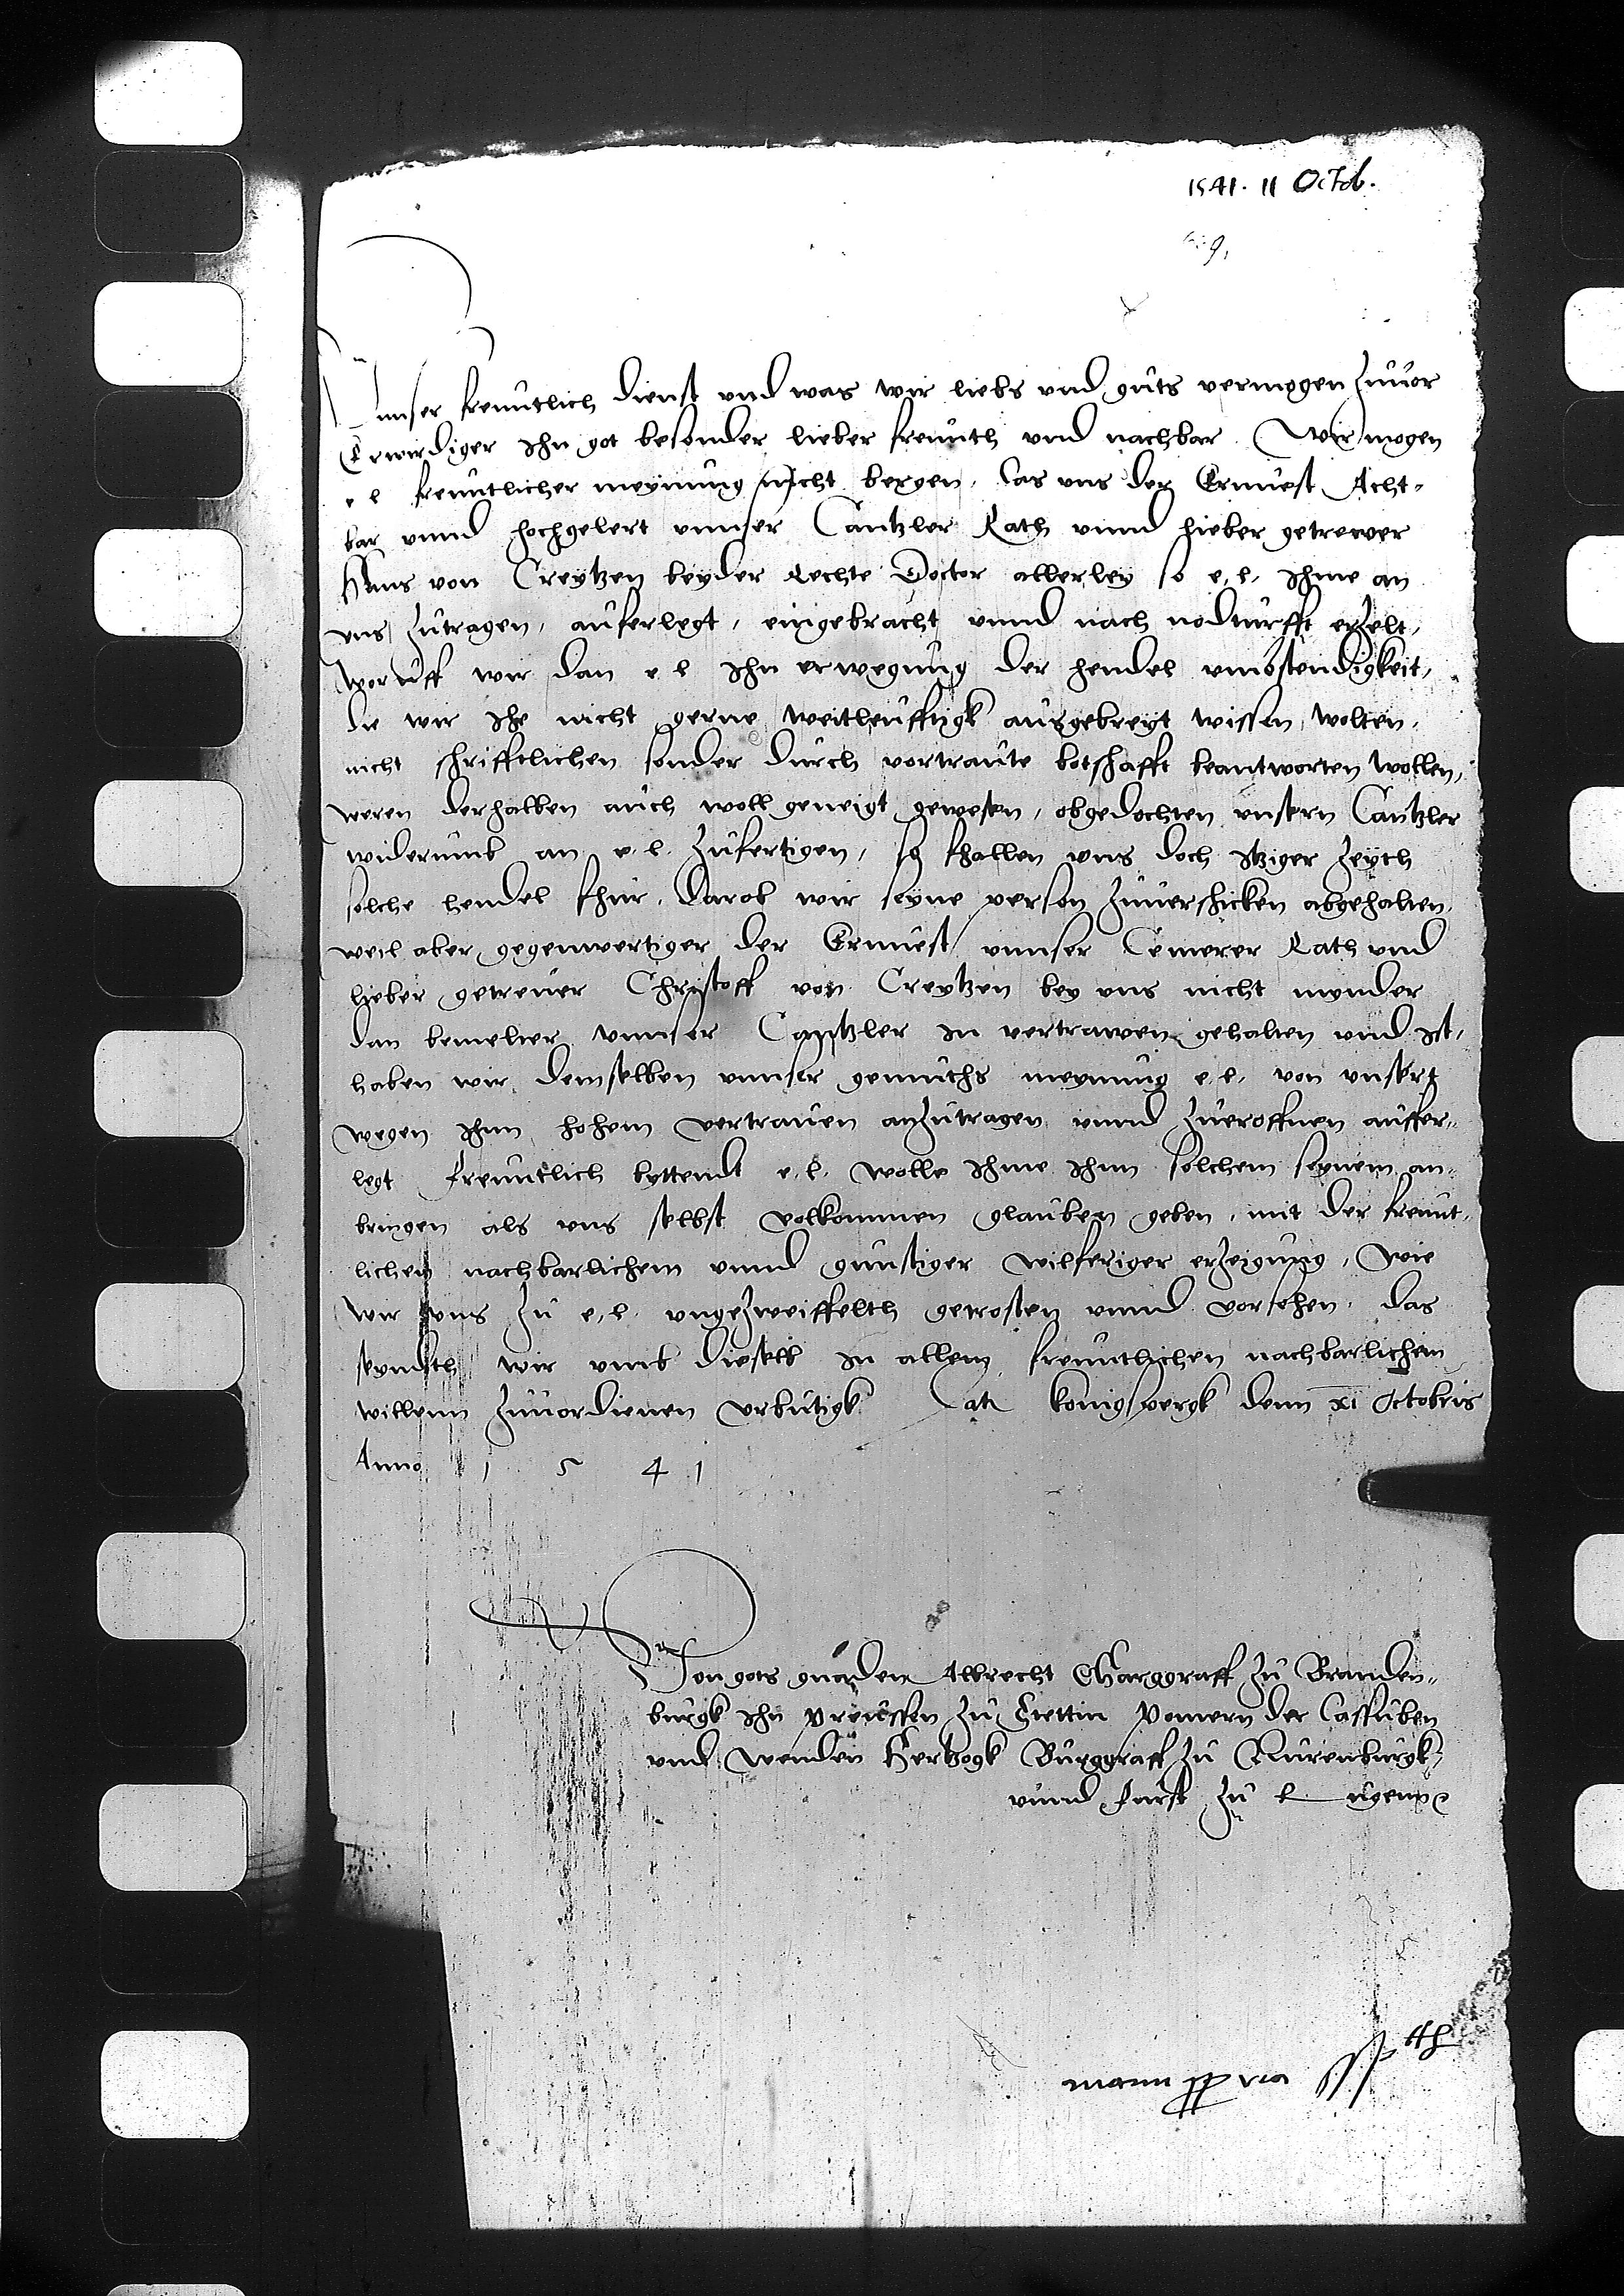 1541. 11 Octob.
Unnser freuntlich dienst vnd was wir liebs vnd guts vermogen zuuor
Erwirdiger Ihn got besonder lieber freunth vnd nachbar. Wir mogen
e l freuntlicher meynung nicht bergen, das vns der Ernuest Acht-
bar vnnd hochgelert vnnser Cantzler Rath vnnd lieber getrewer
Hans von Creytzen beyder Rechte Doctor allerley so e. l. Ihme an
vns zutragen, auferlegt, eingebracht vnnd nach nodturfft erzelt,
woruff wir dan e l Ihn erwegung der hendel vmbstendigkeit,
die wir Ihe nicht gerne weitleufftigk ausgebreyt wissen wolten,
nicht schrifftlichen sonder durch vortraute botschafft beantworten wollen,
weren derhalben auch woll geneigt gewesen, obgedochten vnsern Cantzler
widerumb an e. l. zufertigen, so fhallen vns doch itziger zeyth
solche hendel fhur, darob wir seyne person zuuerschicken abgehalten,
weil aber gegenwertiger der Ernuest vnnser Cemerer Rath vnd
lieber getreuer Christoff von Creytzen bey vns nicht mynder
dan bemelter vnnser Cantzler in vertrawen gehalten vnd ist,
haben wir demselben vnnser gemuths meynung e. l. von vnsert
wegen Ihnn hohem vertrauen anzutragen vnnd zueroffnen auffer-
legt freuntlich byttendt e. l. wolle Ihme Ihnn solchem seynem an-
bringen als vns selbst volkommen glauben geben, mit der freunt-
lichen nachbarlichem vnnd gunstiger wilferiger erzeigung, wie
wir vns zu e. l. vngezweiffelth getrosten vnnd vorsehen. das
seyndth wir vmb dieselb in allem freuntlichen nachbarlichem
willenn zuuordienen vrbutigk Dat konigspergk denn xi Octobris
Anno 1 5 4 1
Von gots gnaden Albrecht Marggraff zu Branden-
burgk Ihn Preussen zu Stettin Pomern der Cassuben
vnd Wenden Hertzogk Burggraff zu Nurenburgk
vnnd furst zu Rugenn
manu ppria sst